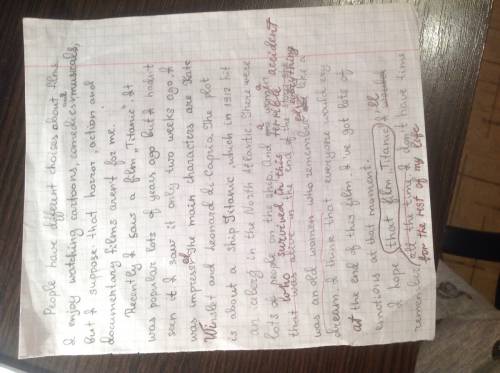 People have different choises about films
I enjoy watching cartoons, comedies and musicals,
But I suppose that horror, action and
documentary films arent for me.
Recently I saw a film "Titanic". It
was popular lots of years ago but I hadn't
seen it I saw it only two weeks ago. I
was impressed The main characters are Kate
Winslet and Leonard di Caprio. The plot
is about a ship Titanic which in 1912 hit
an iceberg in the North Atlantic. There were
lots of people on the ship. And a woman
who survived in this terrible accident
that was alive in the end of the
everything
was an old women who remembered like a
dream. I think that everyone would cry
at the end of this film. I've got lots of
emotions at that moment.
I hope that film Titanic I'll
remember all the time I don't have time
for the rest of my life